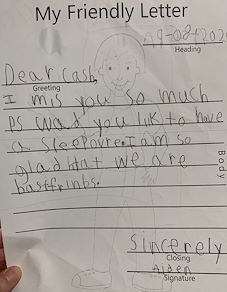 My Friendly Letter
Heading
Dear cash,
Greeting
I mis you so much
PS wat you lik to have
a sleepovre. I am so
glad htat we are
bastfrinbs.
Body
Sincerely
Closing
Aiden
Signature